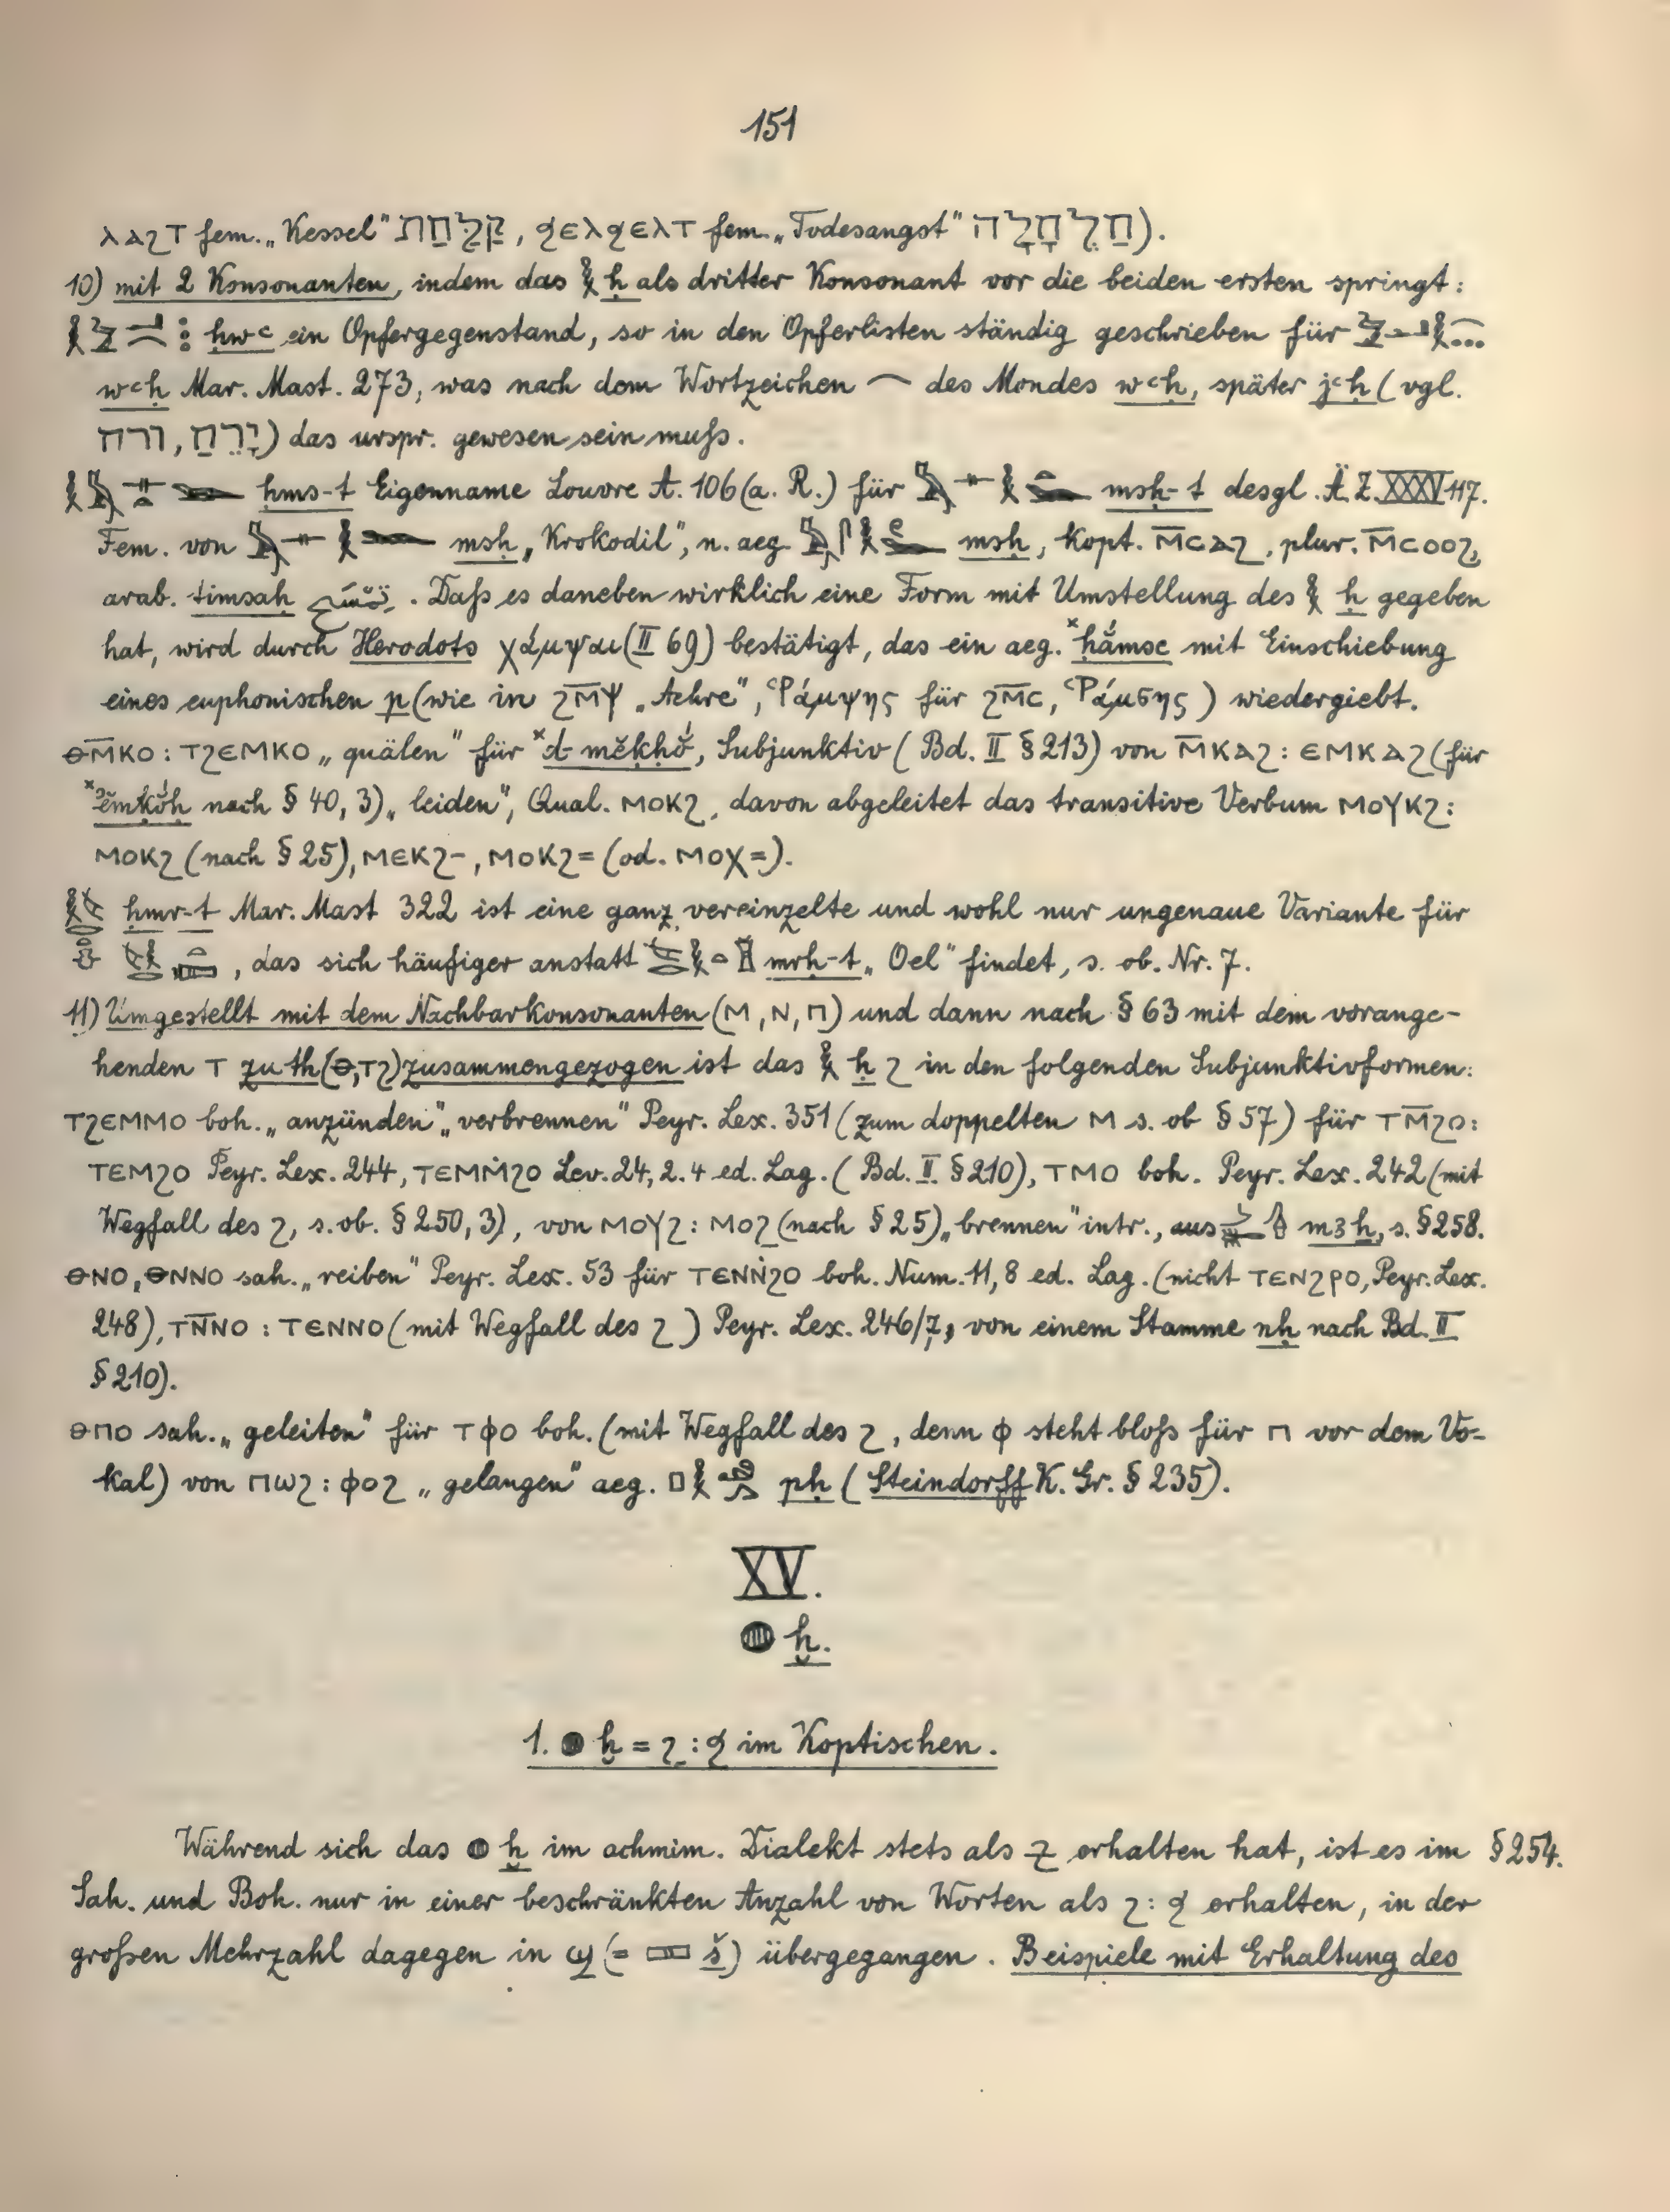 151
ⲗⲁϩⲧ fem. „Kessel" קַלַּחַת, ϧⲉⲗϧⲉⲗⲧ fem. „Todesangst" חַלְחָלָה).
10) mit 2 Konsonanten, indem das 𓎛 ḥ als dritter Konsonant vor die beiden ersten springt:
ḥwꜥ ein Opfergegenstand, so in den Opferlisten ständig geschrieben für
wꜥḥ Mar. Mast. 273, was nach dem Wortzeichen des Mondes wꜥḥ, später jꜥḥ (vgl.
ורח, יָרֵחַ) das urspr. gewesen sein muſs.
ḥms-t Eigenname Louvre A. 106 (a. R.) für msḥ-t desgl. Ä.Z. XXXV 117.
Fem. von msḥ „Krokodil", n. aeg. msḥ, kopt. ⲙ̄ⲥⲁϩ, plur. ⲙ̄ⲥⲟⲟϩ,
arab. timsaḥ تمساح. Daſs es daneben wirklich eine Form mit Umstellung des 𓎛 ḥ gegeben
hat, wird durch Herodots χάμψαι (II 69) bestätigt, das ein aeg. ˣḥắmse mit Einschiebung
eines euphonischen p (wie in ϩⲙ̄ⲯ „Aehre", Ῥάμψης für ϩⲙ̄ⲥ, Ῥάμσης) wiedergiebt.
ⲑⲙ̄ⲕⲟ : ⲧϩⲉⲙⲕⲟ „quälen" für ˣd-mĕkḥŏ́, Subjunktiv (Bd. II § 213) von ⲙ̄ⲕⲁϩ : ⲉⲙⲕⲁϩ (für
ˣʾĕmkŏ́ḥ nach § 40, 3) „leiden", Qual. ⲙⲟⲕϩ, davon abgeleitet das transitive Verbum ⲙⲟⲩⲕϩ :
ⲙⲟⲕϩ (nach § 25), ⲙⲉⲕϩ-, ⲙⲟⲕϩ= (od. ⲙⲟⲭ=).
ḥmr-t Mar. Mast 322 ist eine ganz vereinzelte und wohl nur ungenaue Variante für
, das sich häufiger anstatt mrḥ-t „Oel" findet, s. ob. Nr. 7.
11) Umgestellt mit dem Nachbarkonsonanten (ⲙ, ⲛ, ⲡ) und dann nach § 63 mit dem vorange-
henden ⲧ zu th (ⲑ, ⲧϩ) zusammengezogen ist das 𓎛 ḥ ϩ in den folgenden Subjunktivformen:
ⲧϩⲉⲙⲙⲟ boh. „anzünden", „verbrennen" Peyr. Lex. 351 (zum doppelten ⲙ s. ob § 57) für ⲧⲙ̄ϩⲟ :
ⲧⲉⲙϩⲟ Peyr. Lex. 244, ⲧⲉⲙⲙ̇ϩⲟ Lev. 24, 2. 4 ed. Lag. (Bd. II. § 210), ⲧⲙⲟ boh. Peyr. Lex. 242 (mit
Wegfall des ϩ, s. ob. § 250, 3), von ⲙⲟⲩϩ : ⲙⲟϩ (nach § 25) „brennen" intr., aus mꜣḥ, s. § 258.
ⲑⲛⲟ, ⲑⲛⲛⲟ sah. „reiben" Peyr. Lex. 53 für ⲧⲉⲛⲛ̇ϩⲟ boh. Num. 11, 8 ed. Lag. (nicht ⲧⲉⲛϩⲣⲟ, Peyr. Lex.
248), ⲧⲛ̄ⲛⲟ : ⲧⲉⲛⲛⲟ (mit Wegfall des ϩ) Peyr. Lex. 246/7, von einem Stamme nḥ nach Bd. II
§ 210).
ⲑⲡⲟ sah. „geleiten" für ⲧⲫⲟ boh. (mit Wegfall des ϩ, denn ⲫ steht bloſs für ⲡ vor dem Vo-
kal) von ⲡⲱϩ : ⲫⲟϩ „gelangen" aeg. pḥ (Steindorff K. Gr. § 235).
XV.
𓐍 ḫ.
1. 𓐍 ḫ = ϩ : ϧ im Koptischen.
Während sich das 𓐍 ḫ im achmim. Dialekt stets als ⳉ erhalten hat, ist es im § 254.
Sah. und Boh. nur in einer beschränkten Anzahl von Worten als ϩ : ϧ erhalten, in der
groſsen Mehrzahl dagegen in ϣ (= 𓈙 š) übergegangen. Beispiele mit Erhaltung des